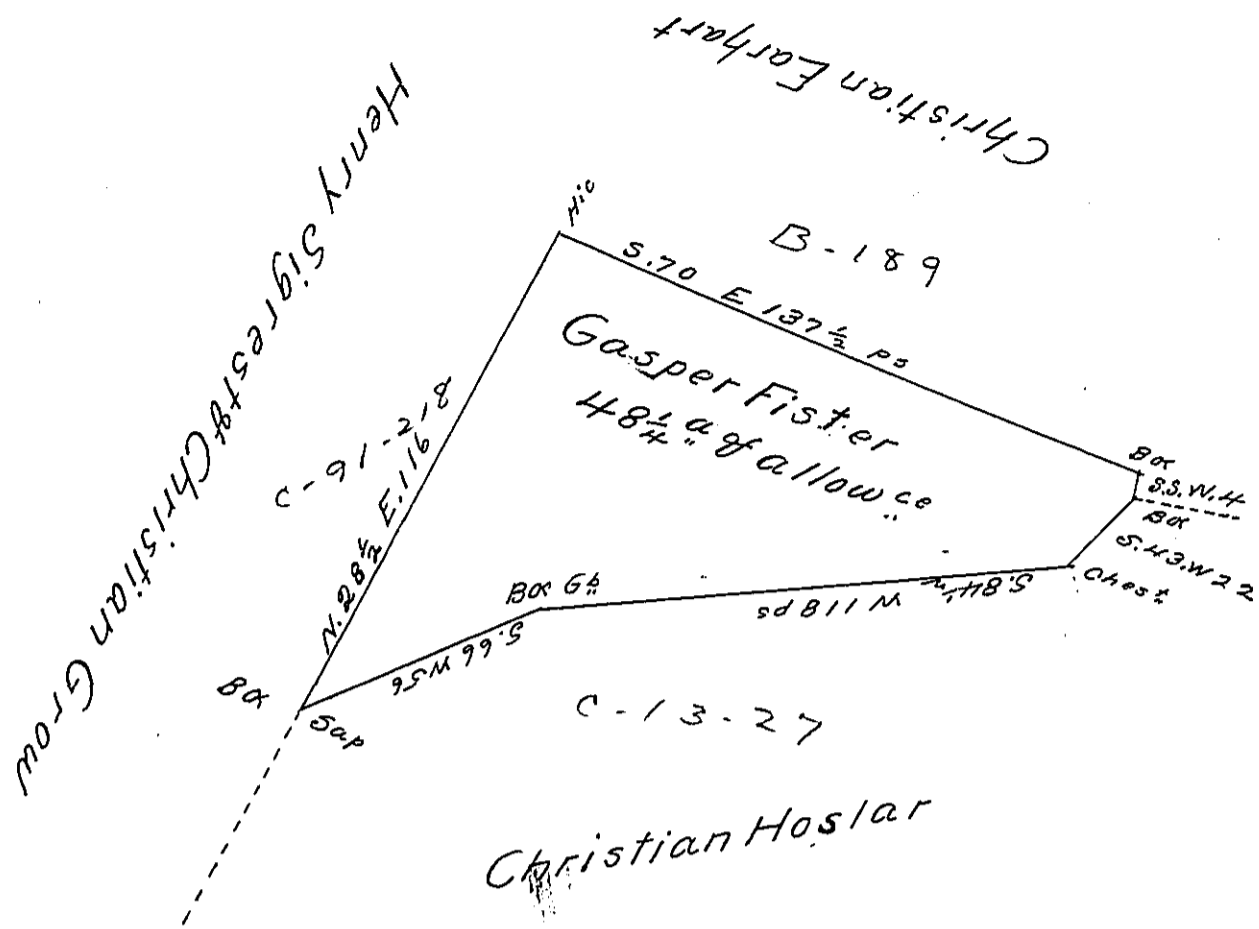 Christian Earhart
Henry Sigrest & Christian Grow
Hic
B-189
S.70 E 137½ ps
Gasper Fister
48¼ a & allowce
C-91-218
N.28½ E.116
BO
S.S.W.4
BO
S.43.W22
Chest
BO Gb
S.84½ W 118 ps
S.66 W56
BO
Sap
C-13-27
Christian Hoslar